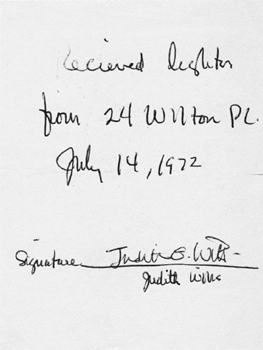 Recieved lighter
from 24 Wilton PL.
July 14, 1972
Signature Judith G.
Judith